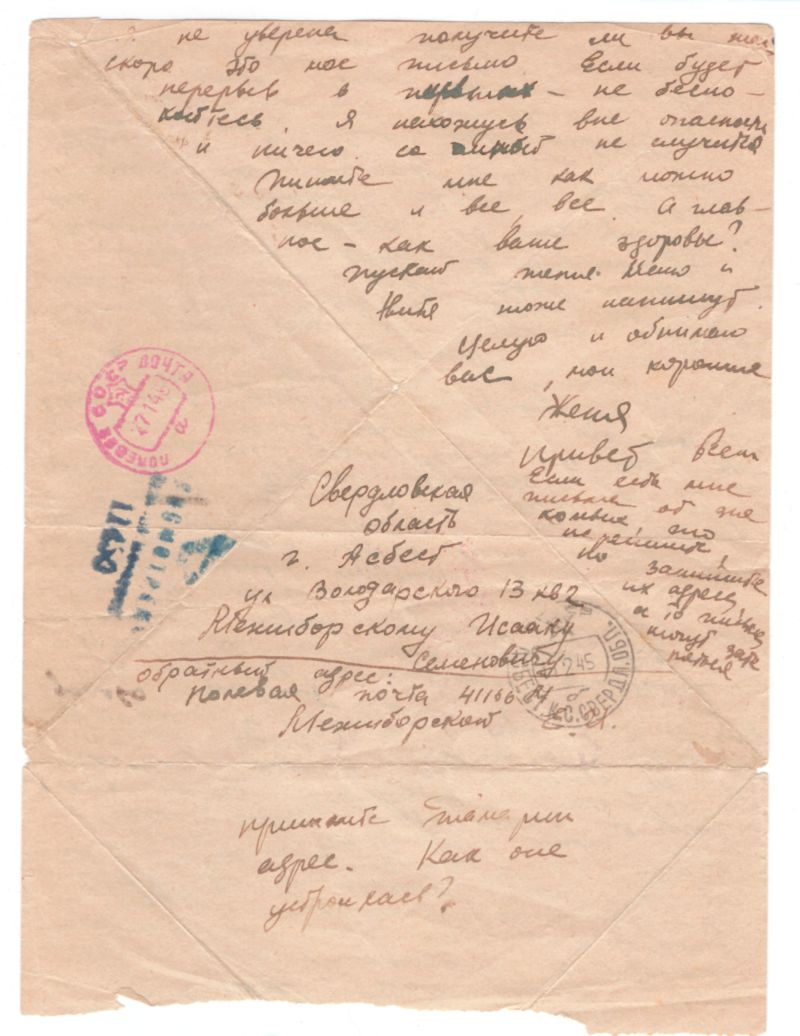 не уверена получите ли вы так
скоро это мое письмо Если будет
перерыв в письмах – не беспо–
койтесь, я нахожусь вне опасности
и ничего со мной не случится
Пишите мне как можно
больше и все, все. А глав–
ное – как ваше здоровье?
Пускай Меню и
тоже напишут.
Целую и обнимаю
вас, мои хорошие
Женя
Привет Всем
Если есть мне
письма от зна
комых, то
перешлите,
Но запишите
их адрес,
а то письма
могут зате
ряться
Свердловская
область
г. Асбест
ул Володарского 13 кв 2
Межиборскому Исааку
Семеновичу
обратный адрес:
Полевая почта 41166 И
Межиборской
пришлите Тамарин
адрес. Как она
устроилась?
ПОЛЕВАЯ ПОЧТА
27 1 45
а
2 45
СВЕРДЛ. ОБЛ.